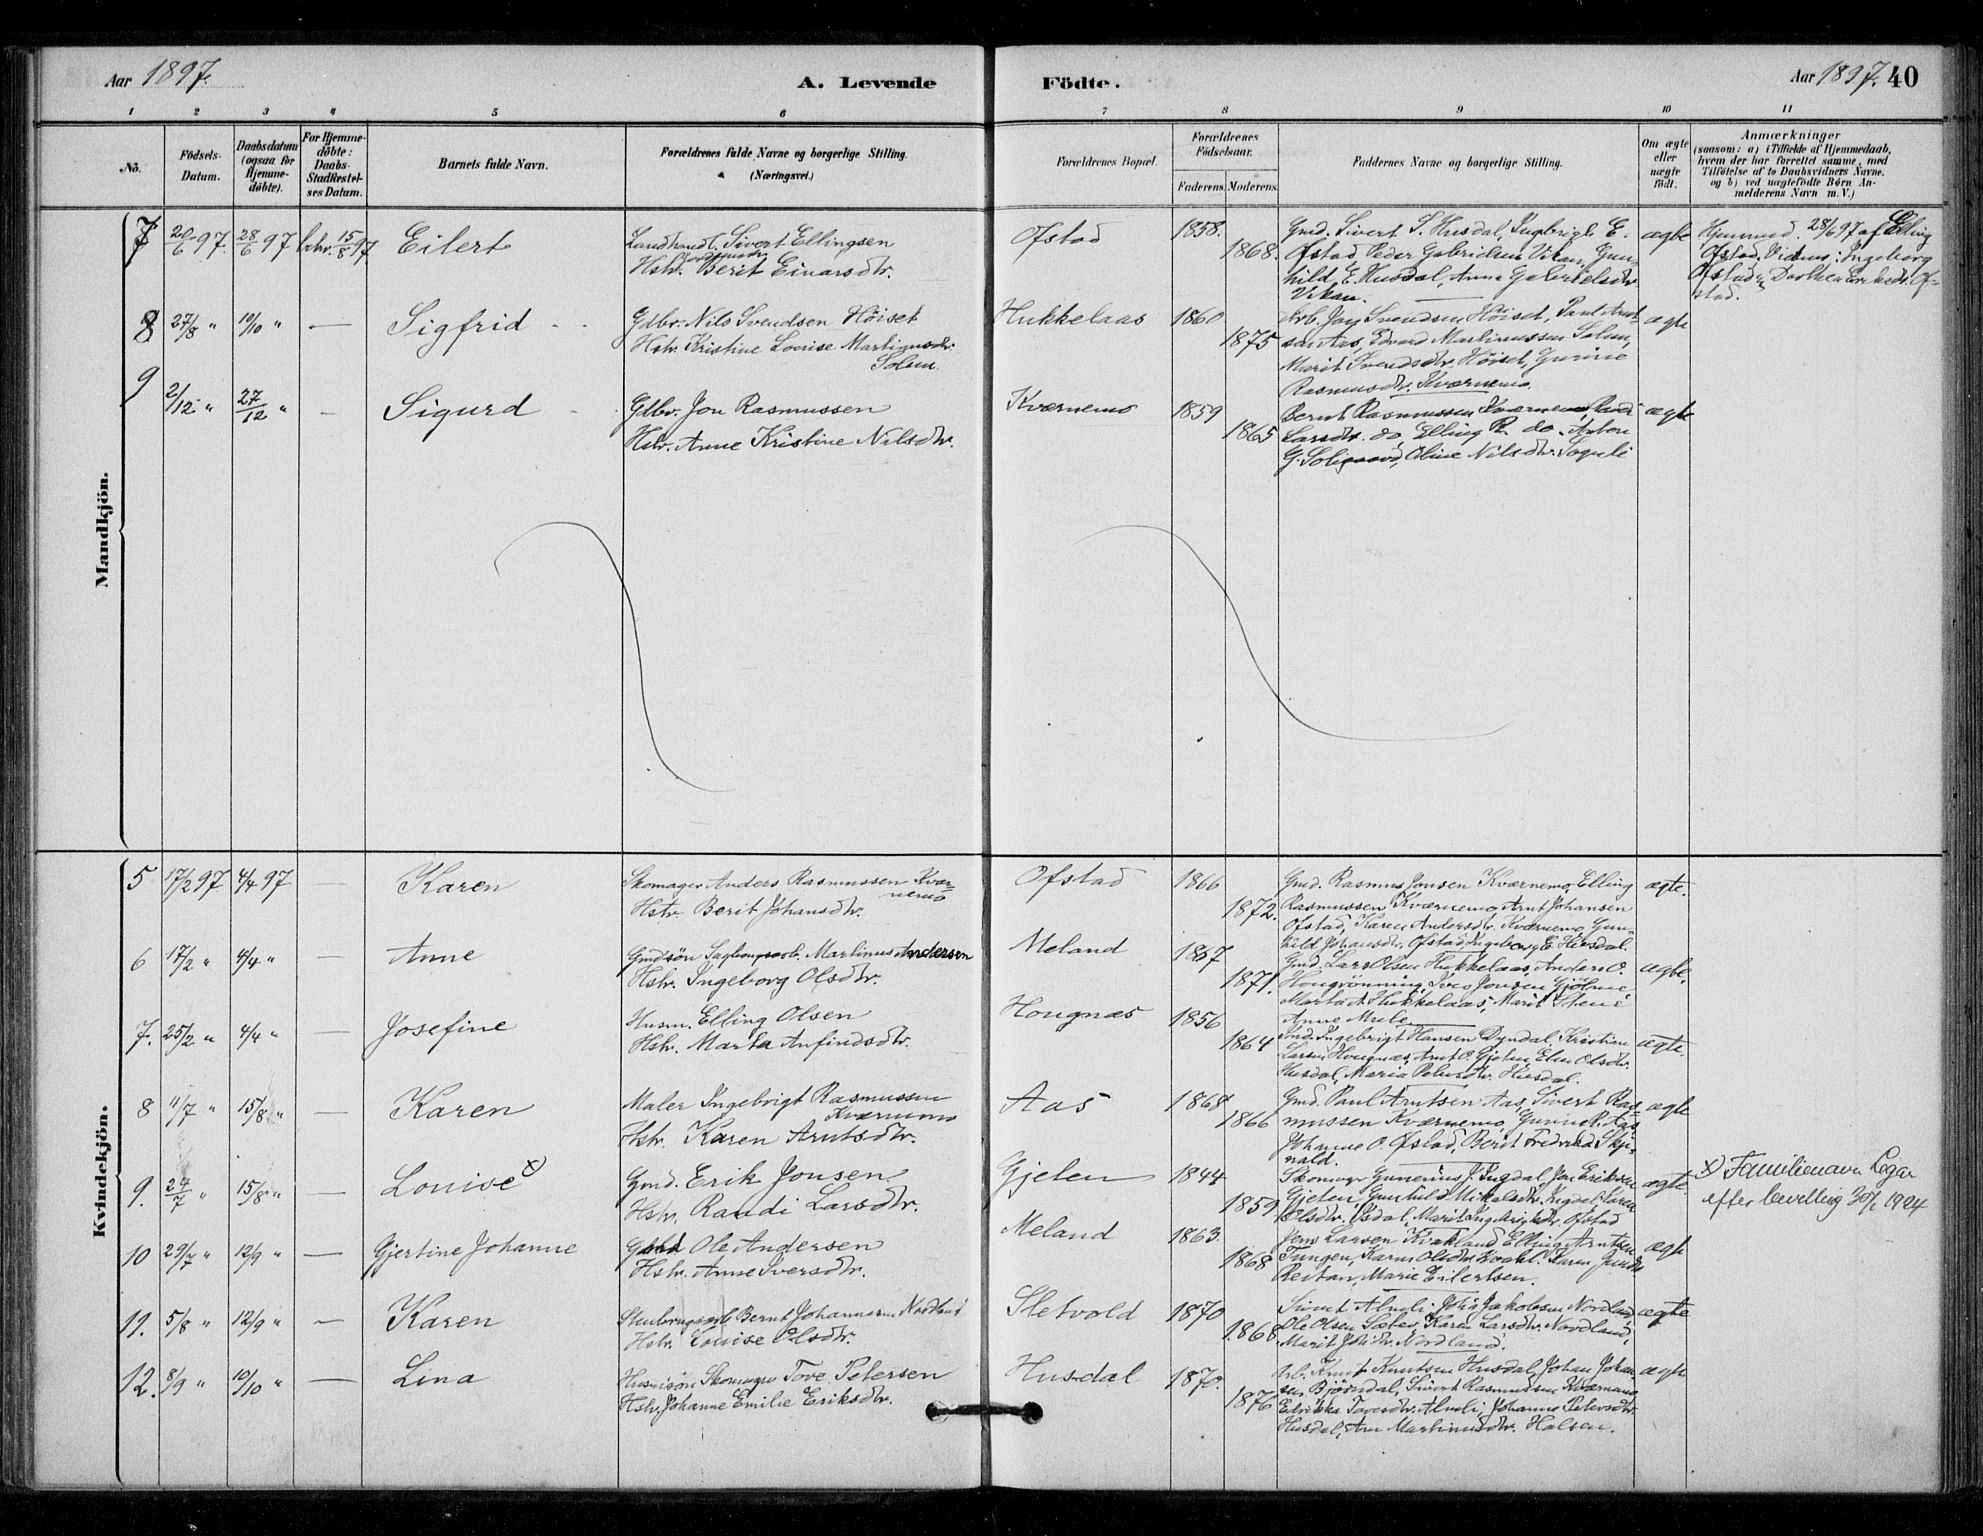 Aar 1897.
A. Levende Födte.
Aar 1897. 40
1 2 3 4 5 6 7 8 9 10 11
No.
Födsels-Datum.
Daabsdatum (ogsaa for Hjemmedöbte).
For Hjemmedöbte: Daabs-Stadfæstelses Datum.
Barnets fulde Navn.
Forældrenes fulde Navne og borgerlige Stilling. (Næringsvei.)
Forældrenes Bopæl.
Forældrenes Födselsaar.
Faderens. Moderens.
Faddernes Navne og borgerlige Stilling.
Om ægte eller uægte födt.
Anmærkninger
(saasom: a) i Tilfælde af Hjemmedaab, hvem der har forrettet samme, med Tilföielse af to Daabsvidners Navne. og b) ved uægtefödte Børn Anmelderens Navn m. V.)
Mandkjön.
7 20/6 97. 28/6 97 15/8 97 Eilert
Landhandl. Sivert Ellingsen
Hstr. Berit Einarsdtr.
Ofstad 1858. 1868.
Gmd. Sivert S. Husdal, Ingbrigt E.
Ofstad, Peder Gabrielsen Vikan, Gun-
hild E. Husdal, Anna Gabrielsdtr
Vikan.
ægte
Hjemmed. 28/6 97 af Elling
Ofstad. Vidner: Ingeborg
Ofstad, Dorthea Of-
stad.
8 27/8 " 10/10 " — Sigfrid
Gdbr. Nils Svendsen Höiset
Hstr. Kristine Louise Martinusdtr.
Solem.
Hukkelaas 1860 1875
Arb. Jon Svendsen Höiset, Paul Arnt-
sen Aas, Edvard Martinussen Solem,
Marit Svendsdtr. Höiset, Gurine
Rasmusdtr. Kværnemo.
ægte
9 2/12 " 27/12 " — Sigurd
Gdbr. Jon Rasmussen
Hstr. Anne Kristine Nilsdtr.
Kværnemo 1859 1865
Bernt Rasmussen Kværnemo, Randi
Larsdtr. do, Elling R. do. Anton
G. Soligaard, Oline Nilsdtr. Sognli
ægte
Kvindekjön.
5 17/2 97 4/4 97 — Karen
Skomager Anders Rasmussen Kvær-
nemo
Hstr. Berit Johansdtr.
Ofstad 1866 1872.
Gmd. Rasmus Jonsen Kværnemo, Elling
Rasmussen Kværnemo, Arnt Johansen
Ofstad, Karen Andersdtr. Kværnemo, Gun-
hild Johansdtr. Ofstad, Ingeborg E. Husdal.
ægte.
6 17/2 " 4/4 " — Anne
Gmdsön Sagbrugsarb. Martinus Andersen
Hstr. Ingeborg Olsdtr.
Meland 1867 1871.
Gmd. Lars Olsen Hukkelaas, Anders O.
Hongrönning, Ives Jonsen Gjölme
Marta A. Hukkelaas, Marit Stene
Anne Mule
ægte.
7. 25/2 " 4/4 " — Josefine
Husm. Elling Olsen
Hstr. Marta Anfindsdtr.
Hougnæs 1856 1864
Ingebrigt Hansen Dyndal, Kristian
Larsen Hougnæs, Arnt O. Gjelen, Elen Olsdtr.
Husdal, Maria Petersdtr. Husdal.
ægte.
8 11/7 " 15/8 " — Karen
Maler Ingebrigt Rasmussen
Kværnemo
Hstr. Karen Arntsdtr.
Aas 1868 1866
Gmd. Paul Arntsen Aas, Sivert Ras-
mussen Kværnemo, Gurine P. Aas,
Johanne O. Ofstad, Berit
nald.
ægte
9. 24/7 " 15/8 " Louise x)
Gmd. Erik Jonsen
Hstr. Randi Larsdtr.
Gjelen 1844 1859
Skomager Gunerius J. Ingdal, Jon Eriksen
Gjelen, Gunhild Mikalsdtr. Ingdal, Karen
Olsdtr. Marit Ingebrigtsdtr. Ofstad
ægte
x) Familienavn
efter bevilling 1924
10 29/7 " 12/9 " — Gjertine Johanne
Ole Andersen
Hstr. Anne Iversdtr.
Meland 1863. 1868
Jens Larsen Elling Arntsen
Tungen, Karen Olsdtr.
Reitan, Marie Eilertsen.
ægte
11. 5/8 " 12/9 " — Karen
Bernt Johannesen Nordland
Hstr. Louise Olsdtr.
Sletvold 1870 1868
Sivert Almli, Johs Jakobsen Nordland,
Ole Olsen Karen Larsdtr. Nordland,
Marit Nordland.
ægte
12. 8/9 " 10/10 " — Lina
Husmsön Skomager Tove Petersen
Hstr. Johanne Emilie Eriksdtr.
Husdal 1870. 1876
Arb. Knut Knutsen Husdal, Johan Johan-
sen Bjöndal, Sivert Rasmussen Kværnemo
Tovesdtr. Almli, Johanna Petersdtr.
Husdal, Martinusdtr. Halsen.
ægte